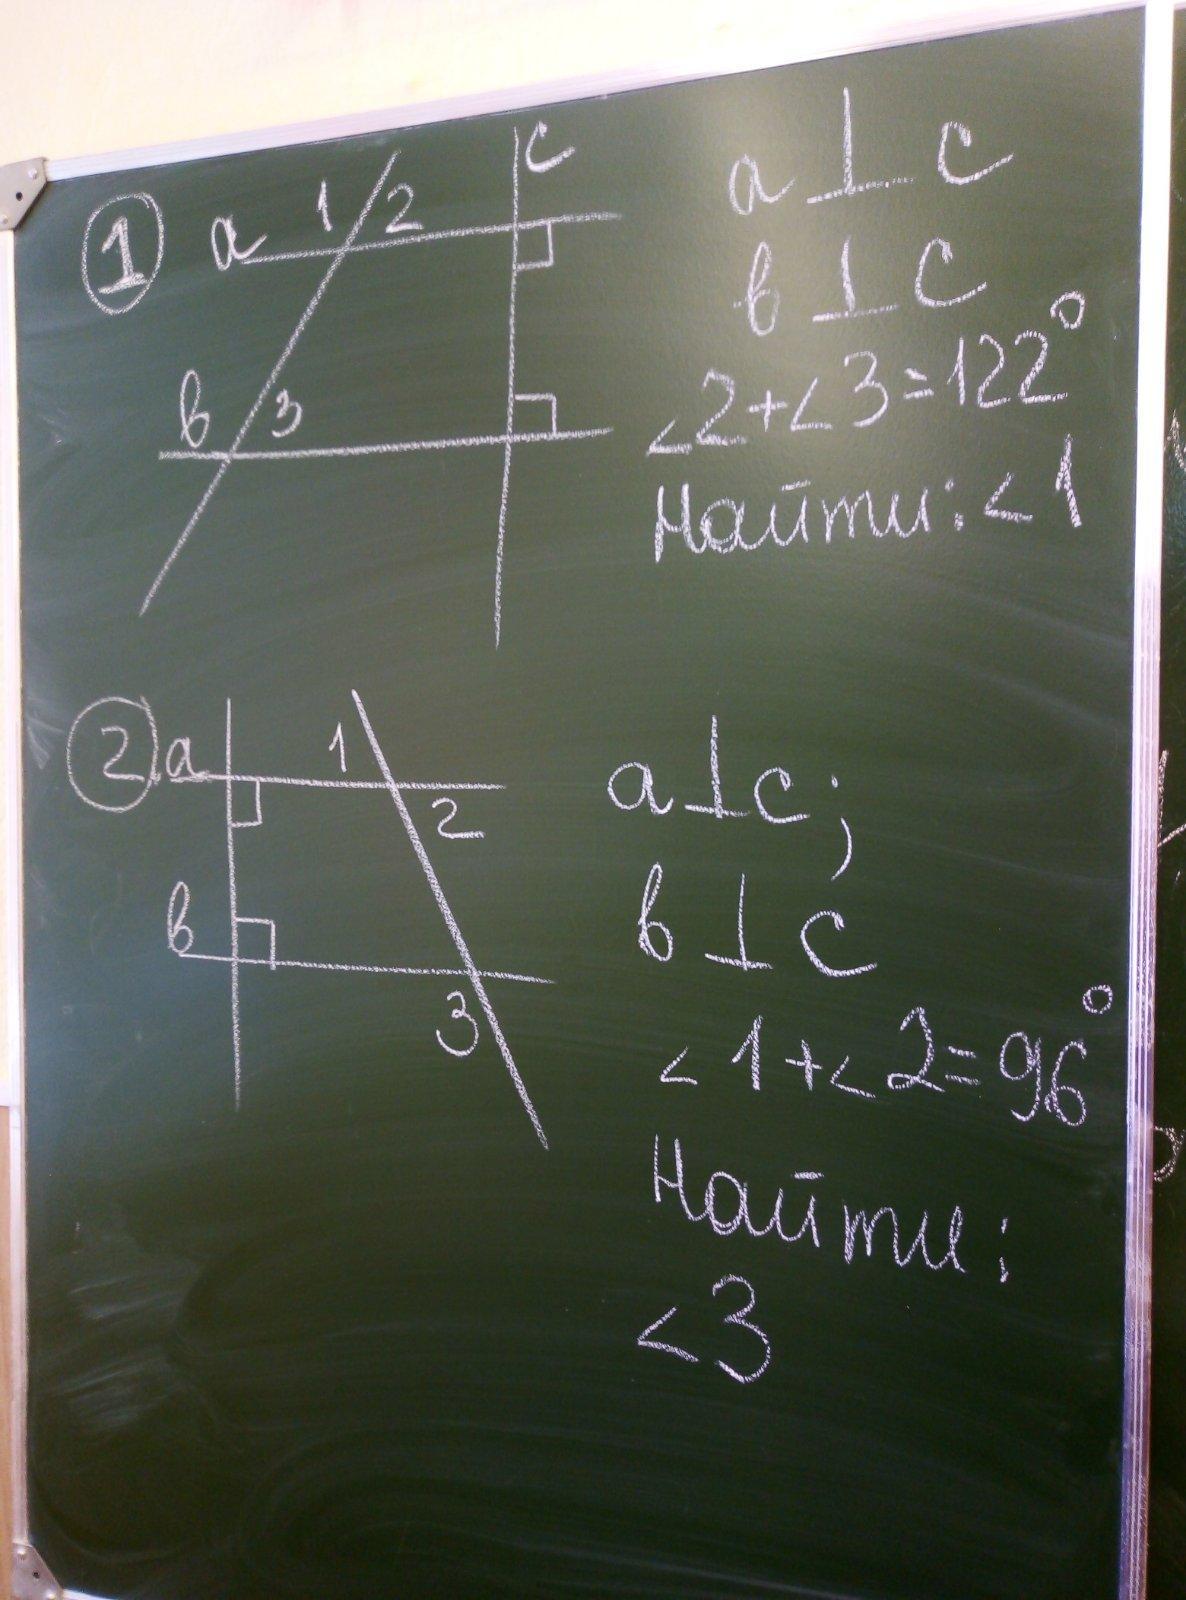 1
a 1 2 c
в 3
a ⊥ c
в ⊥ c
<2+<3=122°
Найти: <1
2
a 1
2
в
3
a⊥c;
в ⊥ c
<1+<2=96°
Найти:
<3